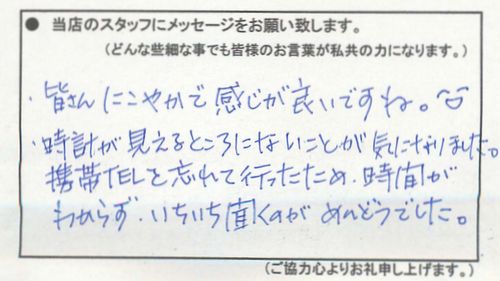 ● 当店のスタッフにメッセージをお願い致します。
（どんな些細な事でも皆様のお言葉が私共の力になります。）
・皆さんにこやかで感じが良いですね。
・時計が見えるところにないことが気になりました。
携帯TELを忘れて行ったため、時間が
わからず、いちいち聞くのがめんどうでした。
（ご協力心よりお礼申し上げます。）